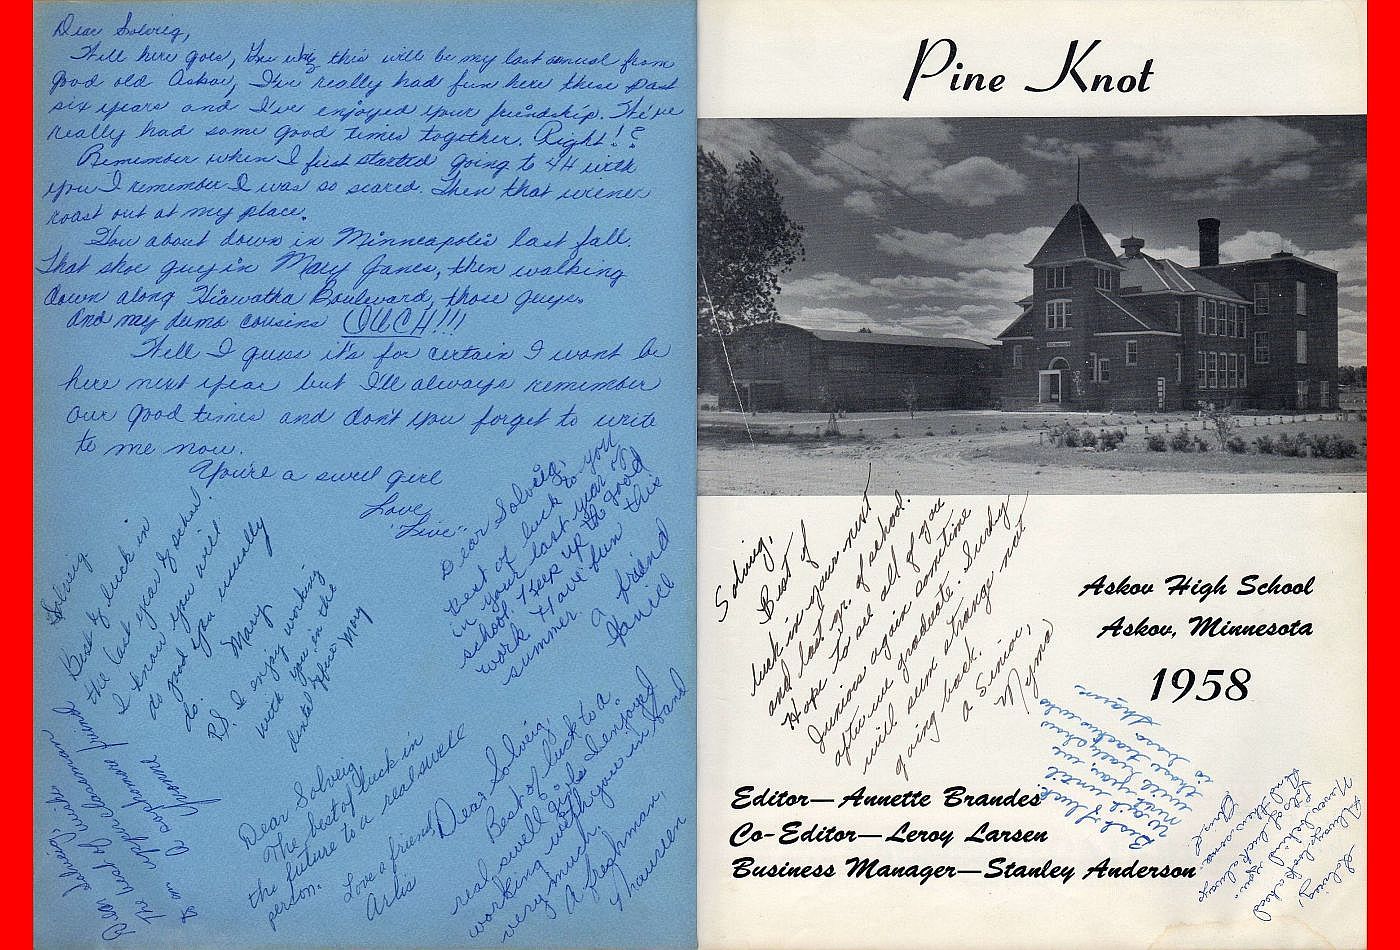 Dear Solveig,
Well here goes, this will be my last annual from
good old Askov, I've really had fun here these past
six years and I've enjoyed your friendship. We've
really had some good times together. Right!?
Remember when I first started going to 4H with
you I remember I was so scared. Then that wiener
roast out at my place.
How about down in Minneapolis last fall.
That shoe guy in Mary Janes, then walking
down along Hiawatha Boulevard, those guys.
And my dumb cousins OUCH!!!
Well I guess it's for certain I wont be
here next year but I'll always remember
our good times and don't you forget to write
to me now.
You're a swell girl
Love,
Solveig
Best of luck in
the last year of school.
I know you will
do good you usually
do.
Mary
P.S. I enjoy working
with you in the
office Mary
Dear Solveig,
Best of luck to you
in your last year of
school. Keep up the good
work. Have fun this
summer.
a friend
Janice
Dear Solveig,
The best of luck
to an upper classman
a sophomore friend
Yvonne
Dear Solveig
The best of luck in
the future to a real swell
person.
Love a friend,
Arlis
Dear Solveig,
Best of luck to a
real swell girl. I enjoyed
working with you in band
very much.
A freshman,
Maureen
Pine Knot
Solveig,
Best of
luck in your next
and last yr. of school.
Hope to see all of you
Juniors again sometime
after we graduate. Surely
will seem strange not
going back.
a Senior,
Myrna
Askov High School
Askov, Minnesota
1958
Best of luck
Sharon
Editor—Annette Brandes
Co-Editor—Leroy Larsen
Business Manager—Stanley Anderson
Solveig,
Always look ahead
Never look behind you.